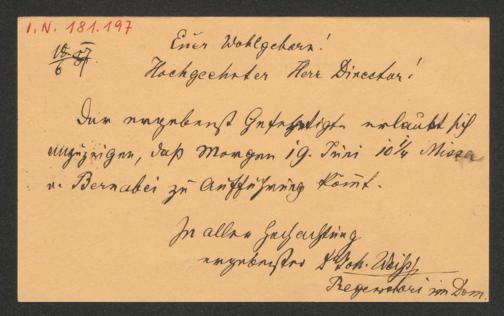 I.N. 181.197
18/6
Euer Wohlgeborn!
Hochgeehrter Herr Director!
Der ergebenst Gefertigte erlaubt sich
anzuzeigen, daß Morgen 19. Juni 10 1/4 Missa
v. Bernabei zu Aufführung kömt.
In aller Hochachtung
ergebenster Dr Joh. Weiß
Regenschori im Dom.